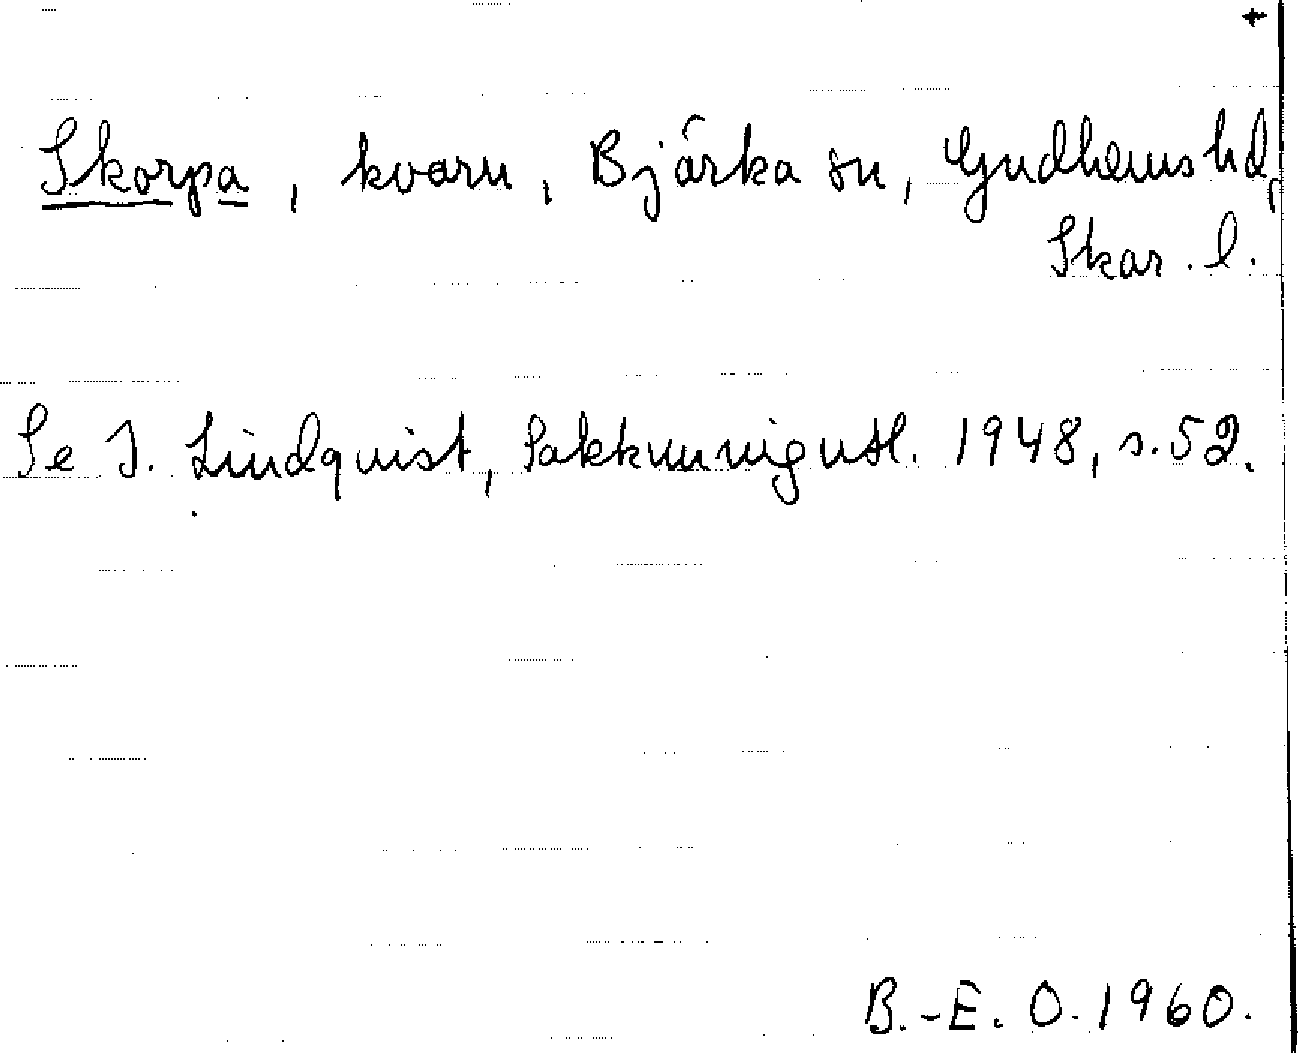 +
Skorpa, kvarn, Bjärka sn, Gudhems hd,
Skar. l.
Se I. Lindquist, Sakkunnigutl. 1948, s. 52.
B.-E. O. 1960.